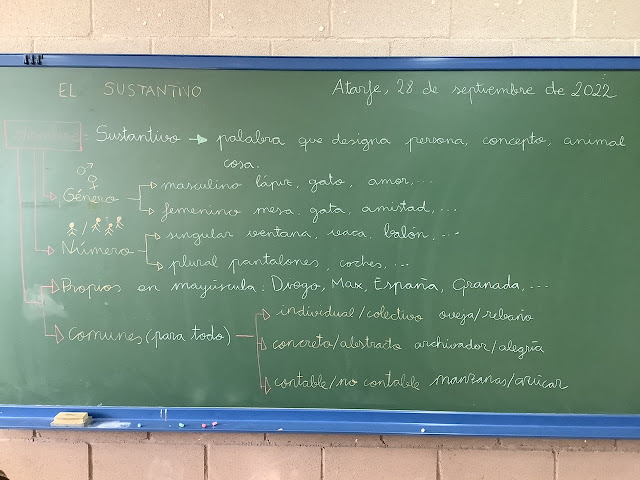 EL SUSTANTIVO Atarfe, 28 de septiembre de 2022
= Sustantivo → palabra que designa persona, concepto, animal
cosa.
Género masculino lápiz, gato, amor,...
femenino mesa, gata, amistad,...
Número singular ventana, vaca, balón,...
plural pantalones, coches,...
Propios en mayúscula: Diego, Max, España, Granada,...
comunes (para todo) individual/colectivo oveja/rebaño
concreto/abstracto archivador/alegría
contable/no contable manzanas/azúcar